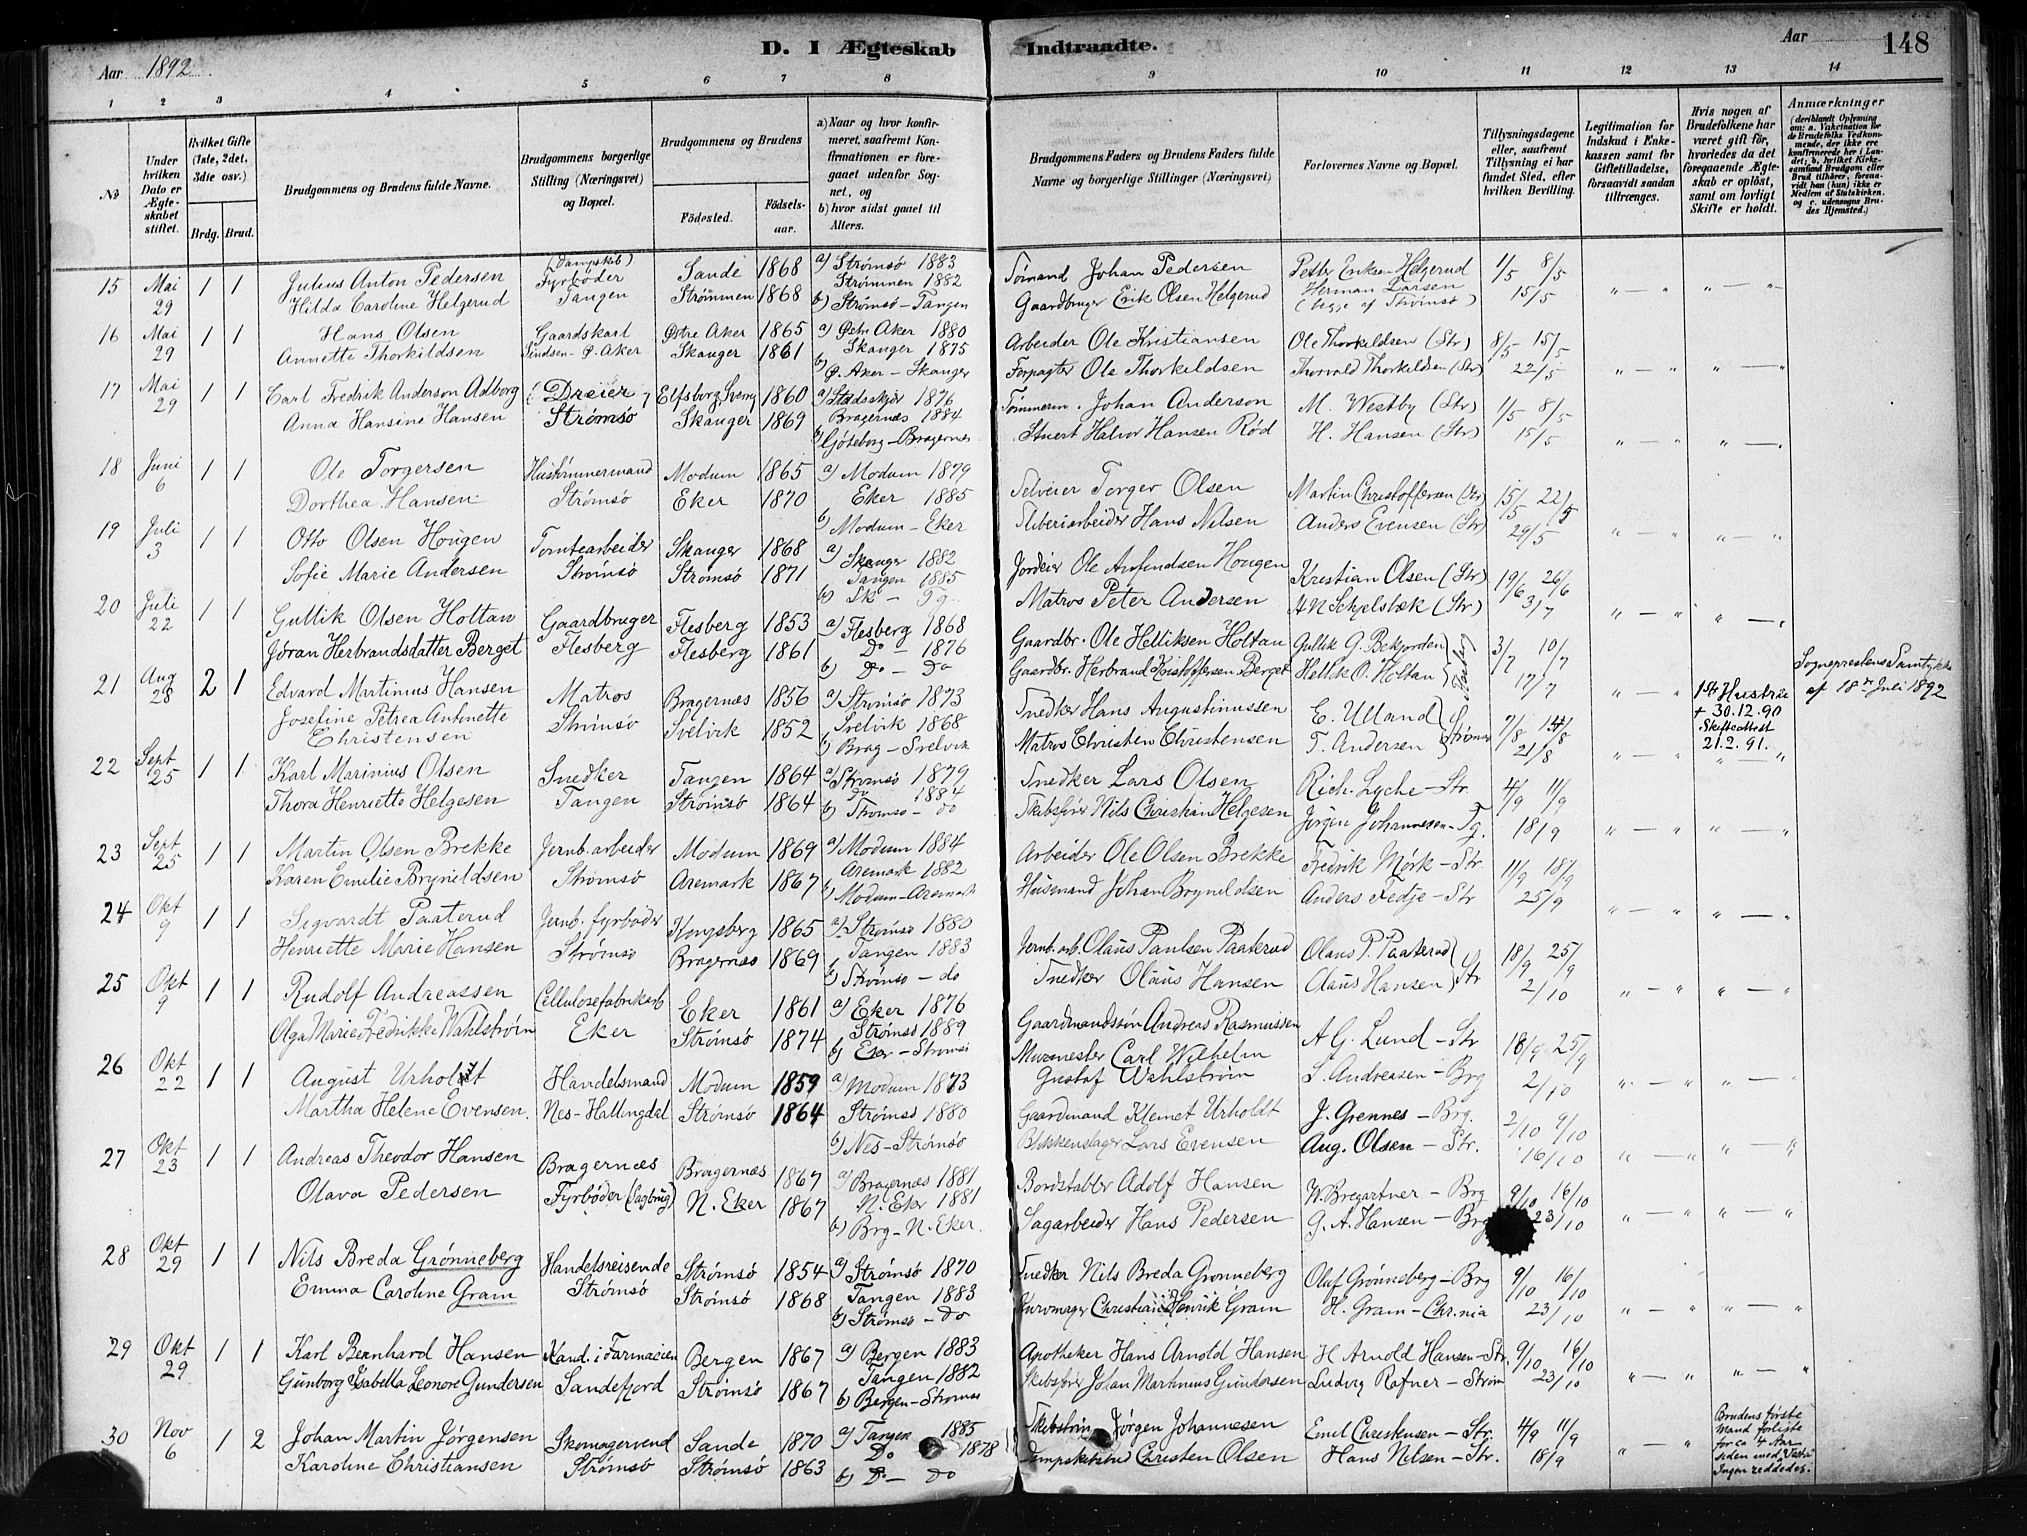 D. I Ægteskab Indtraadte.
Aar 1892
Aar
148
1 2 3 4 5 6 7 8 9 10 11 12 13 14
No
Under hvilken Dato er Ægteskabet stiftet.
Hvilket Gifte (1ste, 2det, 3die osv.)
Brdg. Brud.
Brudgommens og Brudens fulde Navne.
Brudgommens borgerlige Stilling (Næringsvei) og Bopæl.
Brudgommens og Brudens
Fødested. Fødselsaar.
a) Naar og hvor konfirmeret, saafremt Konfirmationen er foregaaet udenfor Sognet, og
b) hvor sidst gaaet til Alters.
Brudgommens Faders og Brudens Faders fulde Navne og borgerlige Stillinger (Næringsvei)
Forlovernes Navne og Bopæl.
Tillysningsdagene eller, saafremt Tillysning ei har fundet Sted, efter hvilken Bevilling.
Legitimation for Indskud i Enkekassen samt for Giftetilladelse, forsaavidt saadan tiltrænges.
Hvis nogen af Brudefolkene har været gift før, hvorledes da det foregaaende Ægteskab er opløst, samt om lovligt Skifte er holdt.
Anmærkninger (deriblandt Oplysning om: a. Vakcination for de Brudefolks Vedkommende, der ikke ere konfirmerede her i Landet; b. hvilket Kirkesamfund Brudgom eller Brud tilhører, forsaavidt han (hun) ikke er Medlem af Statskirken, og c. udensogns Brudes Hjemsted.)
15 Mai 29 1 1 Julius Anton Pedersen (Dampskib) Fyrbøder Sande 1868 a) Strømsø 1883 Johan Pedersen Petter Eriksen Helgerud 1/5 8/5
Hilda Caroline Helgerud Tangen Strømmen 1868 Strømmen 1882 b) Strømsø - Tangen Gaardbruger Erik Olsen Helgerud Herman Larsen (begge af Strømsø) 15/5 " — " " — "
16 Mai 29 1 1 Hans Olsen Gaardskarl Østre Aker 1865 a) Østr Aker 1880 Arbeider Ole Kristiansen Ole Thorkildsen (Str) 8/5 15/5
Annette Thorkildsen Sindsen - Ø. Aker Skauger 1861 Skauger 1875 b) Ø. Aker - Skauger Forpagter Ole Thorkildsen Thorvald Thorkildsen (Str) 22/5 " — " " — "
17 Mai 29 1 1 Carl Fredrik Anderson Adborg Dreier Elfsborg Sverig 1860 a) 1876 Tømmerm. Johan Anderson M. Westby (Str) 1/5 8/5
Anna Hansine Hansen Strømsø Skauger 1869 Bragernæs 1884 b) Göteborg - Bragernæs Stuert Halvor Hansen Rød H. Hansen (Str) 15/5 " — " " — "
18 Juni 6 1 1 Ole Torgersen Hustømmermand Modum 1865 a) Modum 1879 Selveier Torger Olsen Martin Christoffersen (Str) 15/5 22/5
Dorthea Hansen Strømsø Eker 1870 Eker 1885 b) Modum - Eker Sliberiarbeider Hans Nilsen Anders Evensen (Str) 29/5 " — " " — "
19 Juli 3 1 1 Otto Olsen Hougen Tomtearbeider Skauger 1868 a) Skauger 1882 Jordeier Ole Anfindsen Hougen Kristian Olsen (Str) 19/6 26/6
Sofie Marie Andersen Strømsø Strømsø 1871 Tangen 1885 b) Sk - Tg. Matros Peter Andersen A N Schjelsbæk (Str) 3/7 " — " " — "
20 Juli 22 1 1 Gullik Olsen Holtan Gaardbruger Flesberg 1853 a) Flesberg 1868 Gaardbr. Ole Helliksen Holtan Gullik G. Bekjorden 3/7 10/7
Jøran Herbrandsdatter Berget Flesberg Flesberg 1861 Do 1876 b) Do - Do Gaardbr. Herbrand Kristoffersen Berget Hellik O. Holtan 17/7 " — " Sogneprestens Samtykke af 18de Juli 1892
21 Aug 28 2 1 Edvard Martinius Hansen Matros Bragernæs 1856 a) Strømsø 1873 Snedker Hans Augustinussen E. Ulland 7/8 14/8 1ste Hustru + 30.12.90
Josefine Petrea Antonette Christensen Strømsø Svelvik 1852 Svelvik 1868 b) Brag - Svelvik Matros Christen Christensen T. Andersen Strømsø 21/8 " — " Skifteattest 21.2.91. " — "
22 Sept 25 1 1 Karl Marinius Olsen Snedker Tangen 1864 a) Strømsø 1879 Snedker Lars Olsen Rich. Lyche - Str. 4/9 11/9
Thora Henriette Helgesen Tangen Strømsø 1864 Do 1884 b) Strømsø - do Skibsfører Nils Christian Helgesen Jørgen Johannesen - Tg. 18/9 " — " " — "
23 Sept 25 1 1 Martin Olsen Brekke Jernb. arbeider Modum 1869 a) Modum 1884 Arbeider Ole Olsen Brekke Fredrik Mørk - Str. 11/9 18/9
Karen Emilie Brynildsen Strømsø Aremark 1867 Aremark 1882 b) Modum - Aremark Husmand Johan Brynildsen Anders Fedje - Str 25/9 " — " " — "
24 Okt 9 1 1 Sigvardt Paaterud Jernb. fyrbøder Kongsberg 1865 a) Strømsø 1880 Jernb. arb. Olaus Paulsen Paaterud Olaus P. Paaterud 18/9 25/9
Henriette Marie Hansen Strømsø Bragernæs 1869 Tangen 1883 b) Strømsø - do Snedker Olaus Hansen Olaus Hansen Str 2/10 " — " " — "
25 Okt 9 1 1 Rudolf Andreassen Cellulosefabrikarb Eker 1861 a) Eker 1876 Gaardmandssøn Andreas Rasmussen A G. Lund - Str 18/9 25/9
Olga Marie Fredrikke Wahlstrøm Eker Strømsø 1874 Strømsø 1889 b) Eker - Strømsø Murmester Carl Wilhelm Gustaf Wahlstrøm S. Andreasen - Brg 2/10 " — " " — "
26 Okt 22 1 1 August Urholdt Handelsmand Modum 1859 a) Modum 1873 Gaardmand Klemet Urholdt J. Grennes - Brg. 2/10 9/10
Martha Helene Evensen. Nes - Hallingdal Strømsø 1864 Strømsø 1880 b) Nes - Strømsø Blikkenslager Lars Evensen Aug. Olsen - Str. 16/10 " — " " "
27 Okt 23 1 1 Andreas Theodor Hansen Bragernæs Bragernæs 1867 a) Bragernæs 1881 Bordstabler Adolf Hansen W. Bregartner - Brg 9/10 16/10
Olava Pedersen Fyrbøder (Sagbrug) N. Eker 1867 N. Eker 1881 b) Brg - N. Eker. Sagarbeider Hans Pedersen G. A. Hansen - Brg 23/10 " — " " — "
28 Okt 29 1 1 Nils Breda Grønneberg Handelsreisende Strømsø 1854 a) Strømsø 1870 Snedker Nils Breda Grønneberg Oluf Grønneberg - Brg 9/10 16/10
Emma Caroline Gram Strømsø Strømsø 1868 Tangen 1883 b) Strømsø - Do Kurvmager Christian Henrik Gram H. Gram - Chr.nia 23/10 " — " " — "
29 Okt 29 1 1 Karl Bernhard Hansen Kand. i Farmacien Bergen 1867 a) Bergen 1883 Apotheker Hans Arnold Hansen H Arnold Hansen - Str. 9/10 16/10
Gunborg Isabella Leonore Gundersen Sandefjord Strømsø 1867 Tangen 1882 b) Bergen - Strømsø Skibsfører Johan Martinius Gundersen Ludvig Rafner - Strøm 23/10 " — " " — "
30 Nov 6 1 2 Johan Martin Jørgensen Skomagersvend Sande 1870 a) Tangen 1885 Jørgen Johannesen Emil Christensen - Str. 4/9 11/9 Brudens første Mand forliste for ca 4 Aar
Karoline Christiansen Strømsø Strømsø 1863 Do 1878 b) Do - Do Christen Olsen Hans Nilsen - Str. 18/9 " — " siden med Ingen reddedes.